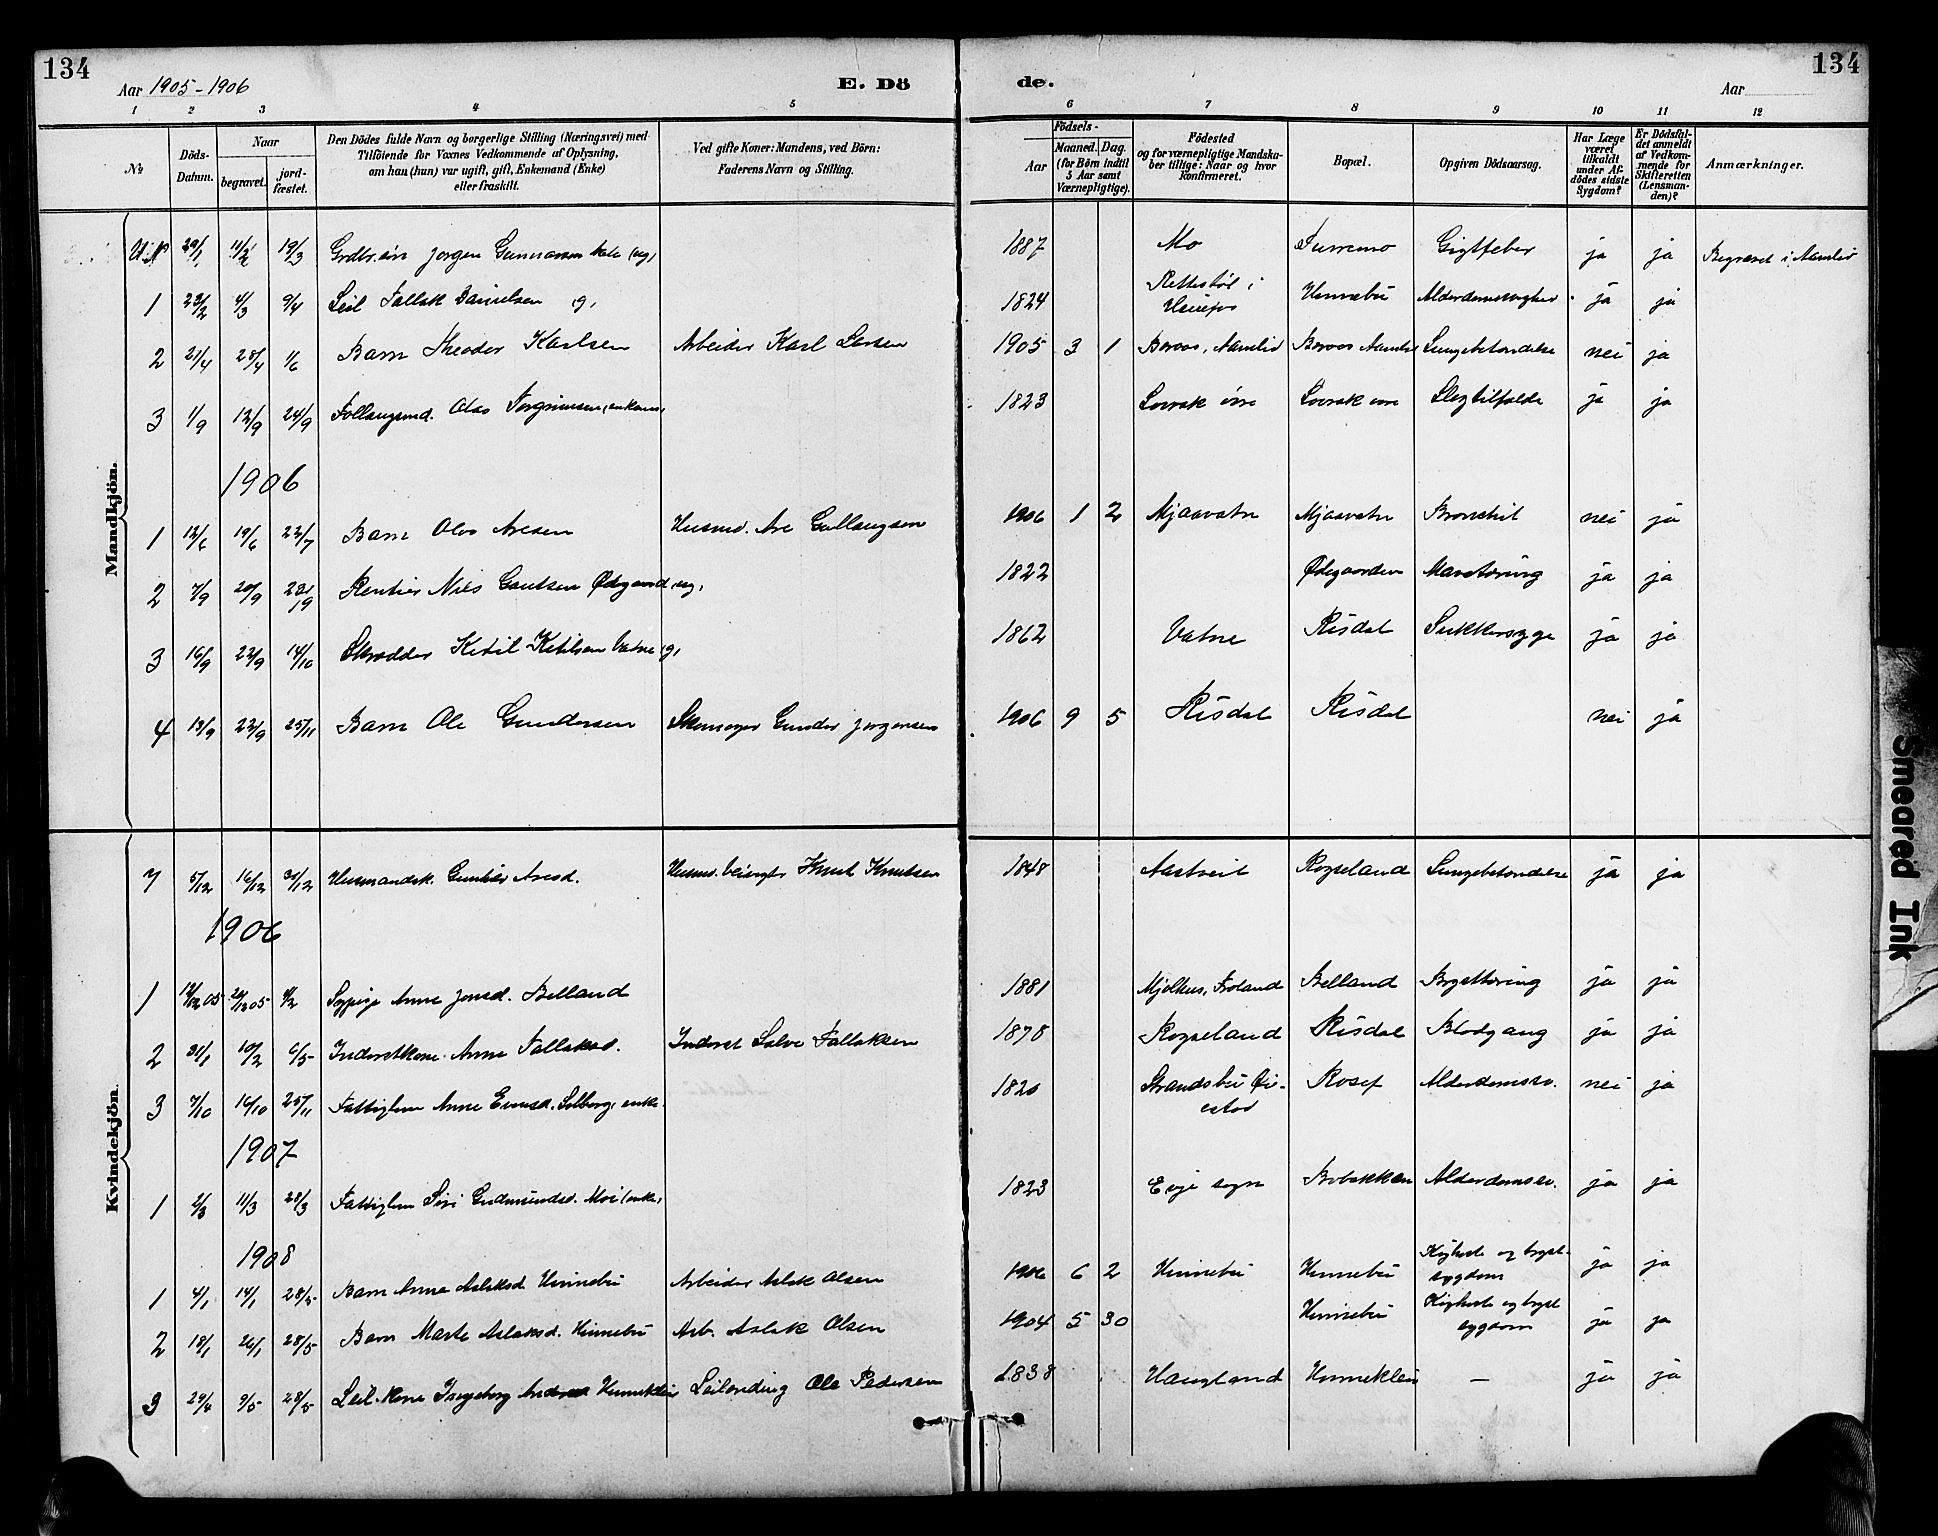 134
134
Aar 1905-1906
E. Dö
de.
Aar
1 2 3 4 5 6 7 8 9 10 11 12
№
Döds-Datum.
Naar
begravet.
jord-fæstet.
Den Dödes fulde Navn og borgerlige Stilling (Næringsvei) med
Tilföiende for Voxnes Vedkommende af Oplysning,
om han (hun) var ugift, gift, Enkemand (Enke)
eller fraskilt.
Ved gifte Koner: Mandens, ved Börn:
Faderens Navn og Stilling.
Födsels-
Aar
Maaned. Dag.
(for Börn indtil
5 Aar samt
Værnepligtige).
Födested
og for værnepligtige Mandska-
ber tillige: Naar og hvor
konfirmeret.
Bopæl.
Opgiven Dödsaarsag.
Har Læge
været
tilkaldt
under Af-
dödes sidste
Sygdom?
Er Dödsfal-
det anmeldt
af Vedkom-
mende for
Skifteretten
(Lensman-
den)?
Anmærkninger.
Mandkjön.
29/1 11/2 19/3 Jørgen Gunnarsen (ug) 1887 Mo Furremo Gigtfeber ja ja Begravet i Aamlid
1 23/2 4/3 9/4 Leil Tallak Danielsen g, 1824 i Hinnebu ja ja
2 21/4 28/4 1/6 Barn Theodor Karlsen Arbeider Karl Larsen 1905 3 1 Boroos, Aamlid Boroos Aamlid Lungebetændelse nei ja
3 1/9 12/9 24/9 Olav Torgrimsen, enkem, 1823 Lovrak Lovrak Slagtilfælde ja ja
1906
1 12/6 19/6 22/7 Barn Olav Aresen Husmd. Are Gullaugsen 1906 1 2 Mjaavatn Mjaavatn Bronchit nei ja
2 7/9 20/9 Rentier Nils Gautsen Ødegaard, ug, 1822 Ødegaarden Mavetæring ja ja
3 16/9 22/9 14/10 Skrædder Ketil Ketilsen Vatne, g, 1862 Vatne Risdal Sukkersyge ja ja
4 13/9 22/9 25/11 Barn Ole Gundersen Skomager Gunder Jørgensen 1906 9 5 Risdal Risdal nei ja
Kvindekjön.
7 5/12 16/12 31/12 Husmandsk. Gunhild Aresd. Knut Knutsen 1848 Aastveit Rogseland Lungebetændelse ja ja
1906
1 Sypige Anne Jonsd. Belland 1881 Mjølhus, Froland Belland Brysttæring ja ja
2 31/1 10/2 6/5 Inderstkone Anne Tallaksd. Inderst Salve Tallaksen 1878 Rogseland Risdal Blodgang ja ja
3 7/10 16/10 25/11 Fattiglem Anne Selberg, enke. 1820 Rosef Alderdomssv. nei ja
1907
1 2/3 11/3 28/3 Fattiglem Siri Gudmundsd. Moi (enke, 1823 Evje sogn Bobakken Alderdomssv. ja ja
1908
1 4/1 14/1 28/5 Barn Anna Aslaksd. Hinnebu Arbeider Aslak Olsen 1906 6 2 Hinnebu Hinnebu Kighoste og bryst-
sygdom ja ja
2 18/1 26/1 28/5 Barn Marte Aslaksd. Hinnebu Arb. Aslak Olsen 1904 5 30 Hinnebu Kighoste og bryst
sygdom ja ja
3 29/4 9/5 28/5 Leil. kone Ingeborg Leilending Ole Pedersen 1838 Haugland Hinneklei — ja ja
Smeared Ink